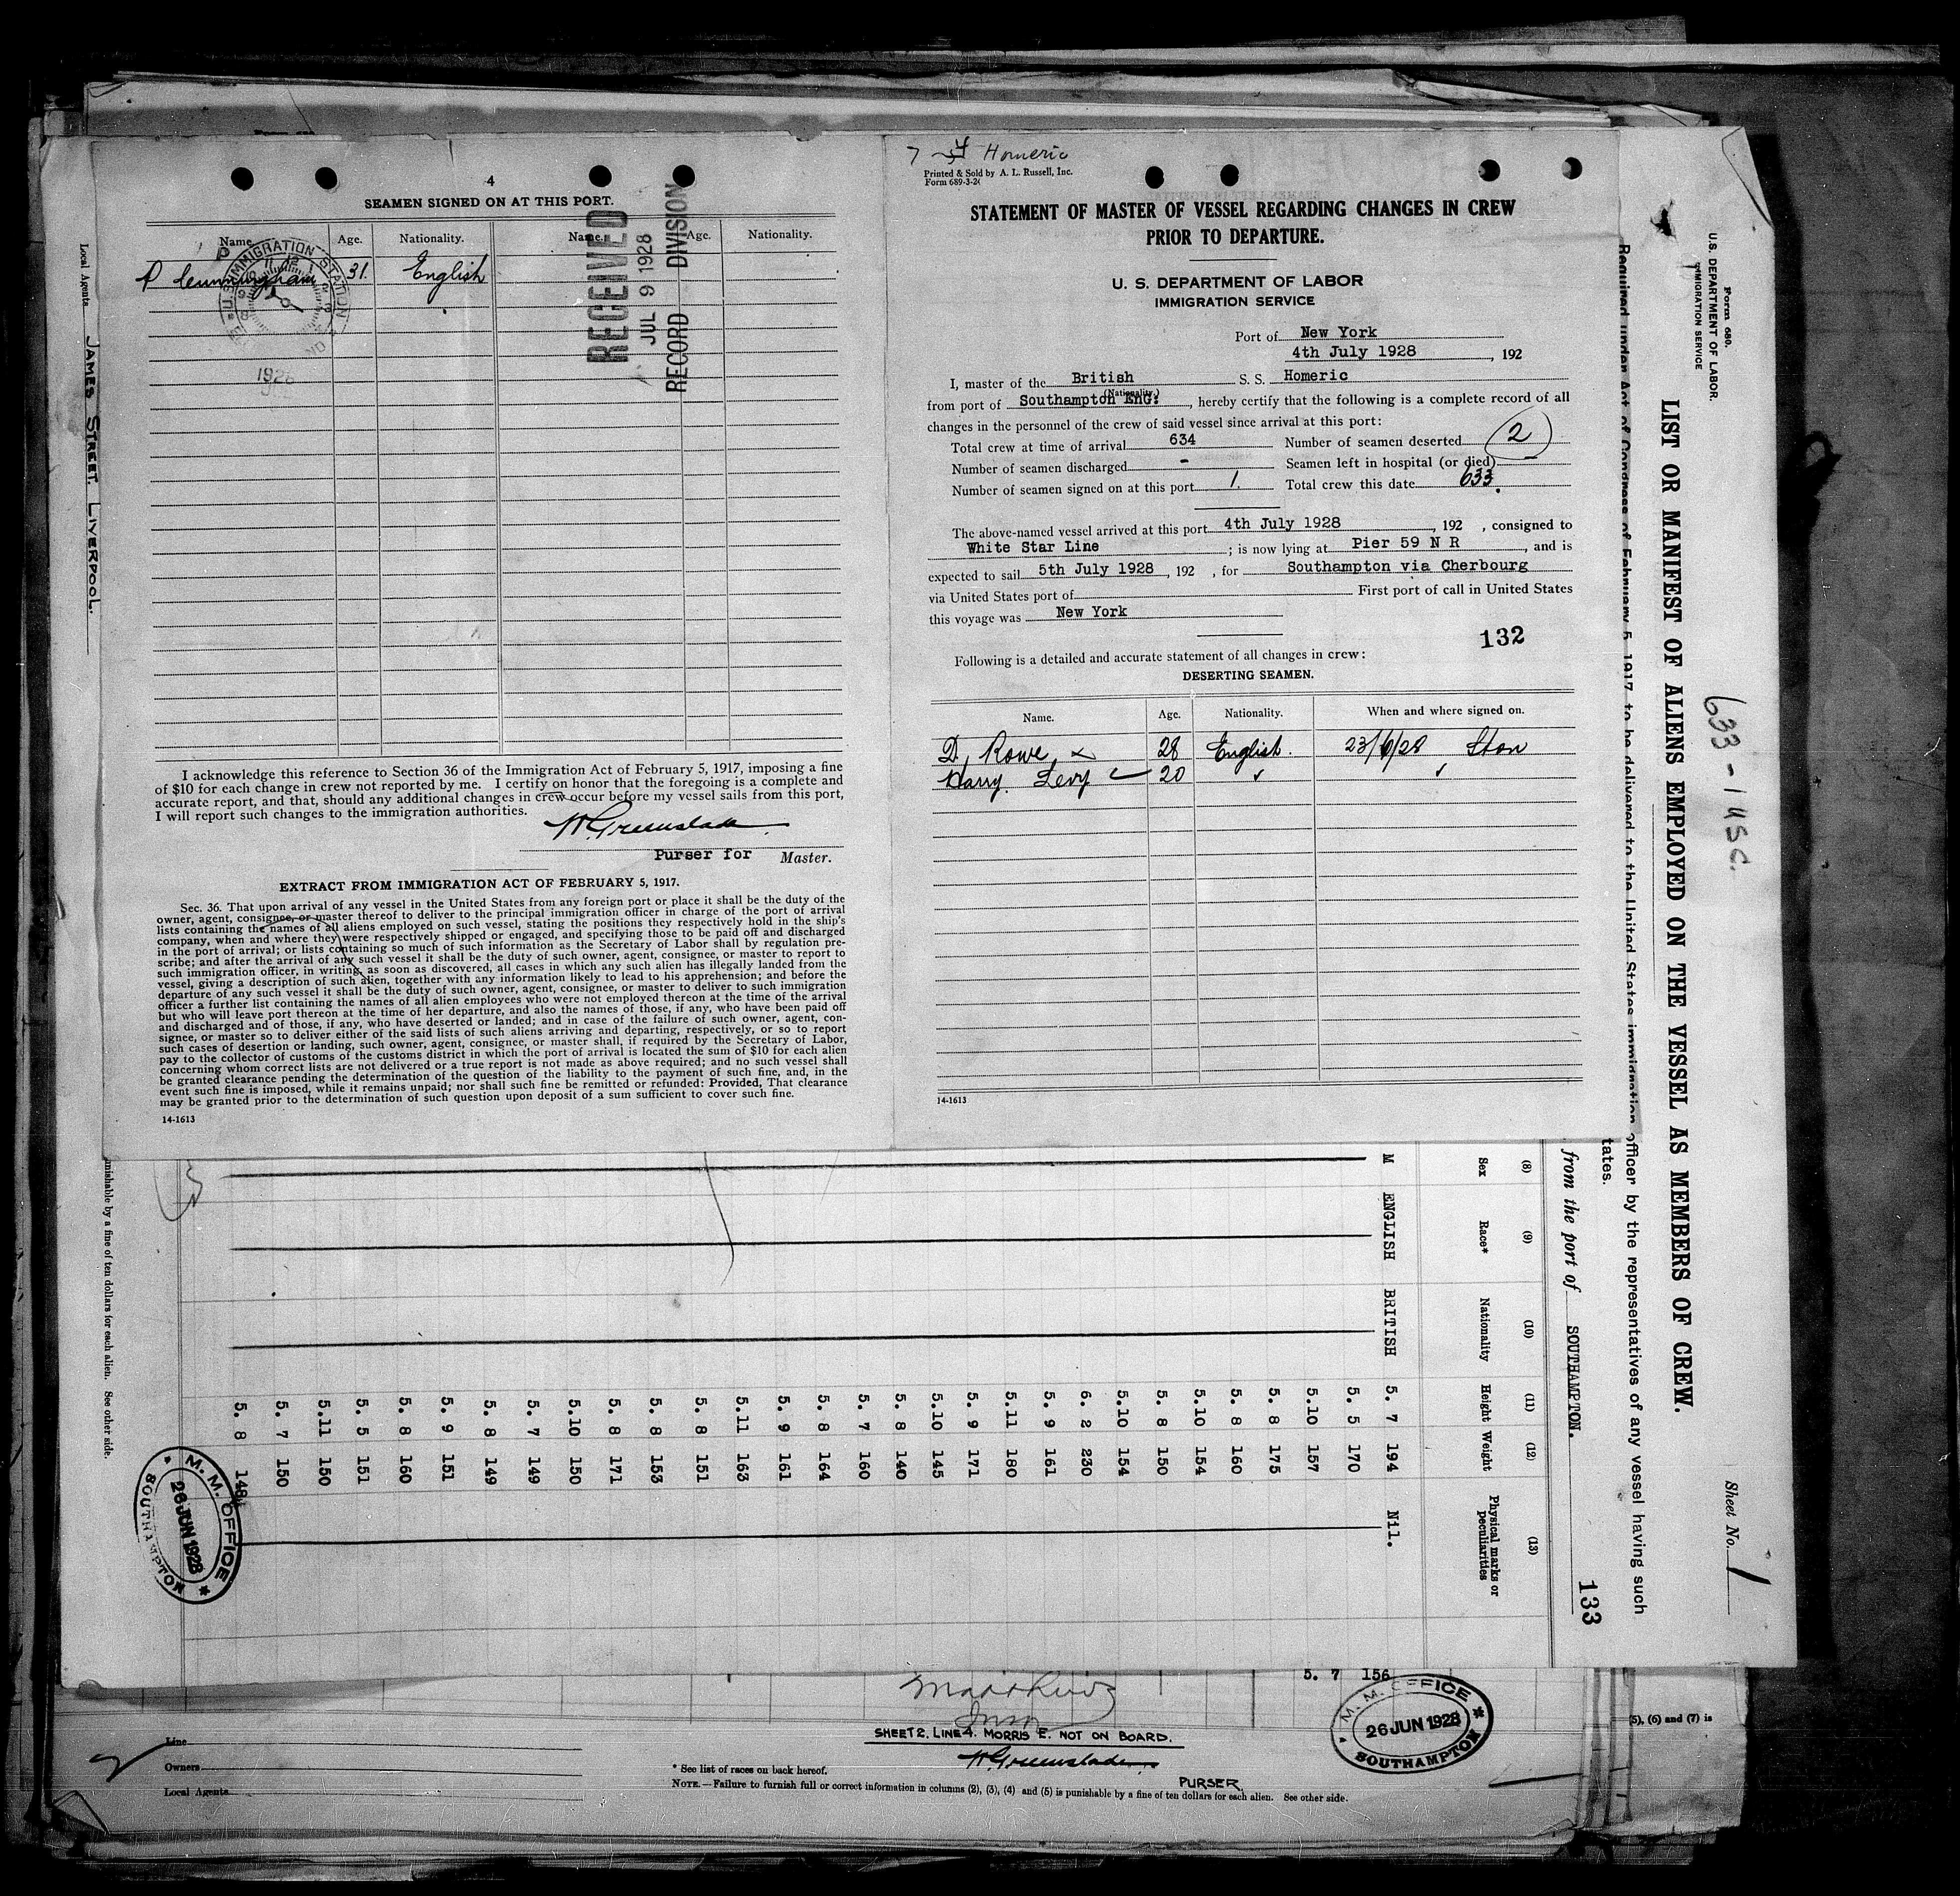 4
SEAMEN SIGNED ON AT THIS PORT.
Name. Age. Nationality. Name. Age. Nationality.
P Cunningham 31. English
U.S. IMMIGRATION STATION
1928
RECEIVED
JUL 9 1928
RECORD DIVISION
I acknowledge this reference to Section 36 of the Immigration Act of February 5, 1917, imposing a fine
of $10 for each change in crew not reported by me. I certify on honor that the foregoing is a complete and
accurate report, and that, should any additional changes in crew occur before my vessel sails from this port,
I will report such changes to the immigration authorities.
W Greenslade
Purser for Master.
EXTRACT FROM IMMIGRATION ACT OF FEBRUARY 5, 1917.
Sec. 36. That upon arrival of any vessel in the United States from any foreign port or place it shall be the duty of the
owner, agent, consignee, or master thereof to deliver to the principal immigration officer in charge of the port of arrival
lists containing the names of all aliens employed on such vessel, stating the positions they respectively hold in the ship's
company, when and where they were respectively shipped or engaged, and specifying those to be paid off and discharged
in the port of arrival; or lists containing so much of such information as the Secretary of Labor shall by regulation pre-
scribe; and after the arrival of any such vessel it shall be the duty of such owner, agent, consignee, or master to report to
such immigration officer, in writing, as soon as discovered, all cases in which any such alien has illegally landed from the
vessel, giving a description of such alien, together with any information likely to lead to his apprehension; and before the
departure of any such vessel it shall be the duty of such owner, agent, consignee, or master to deliver to such immigration
officer a further list containing the names of all alien employees who were not employed thereon at the time of the arrival
but who will leave port thereon at the time of her departure, and also the names of those, if any, who have been paid off
and discharged and of those, if any, who have deserted or landed; and in case of the failure of such owner, agent, con-
signee, or master so to deliver either of the said lists of such aliens arriving and departing, respectively, or so to report
such cases of desertion or landing, such owner, agent, consignee, or master shall, if required by the Secretary of Labor,
pay to the collector of customs of the customs district in which the port of arrival is located the sum of $10 for each alien
concerning whom correct lists are not delivered or a true report is not made as above required; and no such vessel shall
be granted clearance pending the determination of the question of the liability to the payment of such fine, and, in the
event such fine is imposed, while it remains unpaid; nor shall such fine be remitted or refunded: Provided, That clearance
may be granted prior to the determination of such question upon deposit of a sum sufficient to cover such fine.
14-1613
Homeric
Printed & Sold by A. L. Russell, Inc.
Form 689-3-2
STATEMENT OF MASTER OF VESSEL REGARDING CHANGES IN CREW
PRIOR TO DEPARTURE.
U. S. DEPARTMENT OF LABOR
IMMIGRATION SERVICE
Port of New York
4th July 1928, 192
I, master of the British S. S. Homeric
(Nationality.)
from port of Southampton Eng:, hereby certify that the following is a complete record of all
changes in the personnel of the crew of said vessel since arrival at this port:
Total crew at time of arrival 634 Number of seamen deserted 2
Number of seamen discharged - Seamen left in hospital (or died)
Number of seamen signed on at this port 1. Total crew this date 633.
The above-named vessel arrived at this port 4th July 1928, 192 , consigned to
White Star Line ; is now lying at Pier 59 N R, and is
expected to sail 5th July 1928, 192 , for Southampton via Cherbourg
via United States port of First port of call in United States
this voyage was New York
132
Following is a detailed and accurate statement of all changes in crew:
DESERTING SEAMEN.
Name. Age. Nationality. When and where signed on.
D. Rowe 28 English. 23/6/28 Ston
Harry Levy 20 ✓ ✓
14-1613
Form 680.
U.S. DEPARTMENT OF LABOR.
IMMIGRATION SERVICE
LIST OR MANIFEST OF ALIENS EMPLOYED ON THE VESSEL AS MEMBERS OF CREW.
Sheet No. 1
633 - 1 USC.
Required under Act of Congress of February 5, 1917, to be delivered to the United States immigration officer by the representatives of any vessel having such
tates.
from the port of SOUTHAMPTON.
133
(8) Sex
(9) Race*
(10) Nationality
(11) Height
(12) Weight
(13) Physical marks or peculiarities
M ENGLISH BRITISH 5. 7 194 Nil.
5. 5 170
5.10 157
5. 8 175
5. 8 160
5.10 154
5. 8 150
5.10 154
6. 2 230
5. 9 161
5.11 180
5. 9 171
5.10 145
5. 8 140
5. 7 160
5. 8 164
5. 9 161
5.11 163
5. 8 151
5. 8 153
5. 8 171
5.10 150
5. 7 149
5. 8 149
5. 9 151
5. 8 160
5. 5 151
5.11 150
5. 7 150
5. 8 148
Local Agents JAMES STREET. LIVERPOOL.
unishable by a fine of ten dollars for each alien. See other side.
M. M. OFFICE
26 JUN 1928
SOUTHAMPTON
5. 7 156
SHEET 2. LINE 4. MORRIS E. NOT ON BOARD.
W Greenslade
PURSER
M. M. OFFICE
26 JUN 1928
SOUTHAMPTON
(5), (6) and (7) is
Line
Owners
Local Agents
* See list of races on back hereof.
NOTE.—Failure to furnish full or correct information in columns (2), (3), (4) and (5) is punishable by a fine of ten dollars for each alien. See other side.